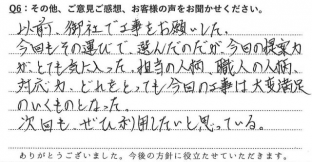 Q6：その他、ご意見ご感想、お客様の声をお聞かせください。
以前、御社で工事をお願いした。
今回もその運びで、選んだのだが、今回の提案力
が、とても気に入った。担当の人柄、職人の人柄、
対応力、どれをとっても今回の工事は大変満足
のいくものとなった。
次回も、ぜひ利用したいと思っている。
ありがとうございました。今後の方針に役立たせていただきます。